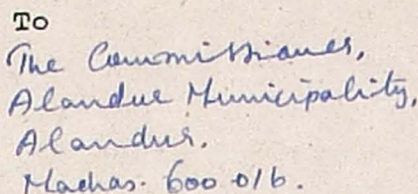 To
The Commissioner,
Alandur Municipality,
Alandur.
Madras. 600 016.